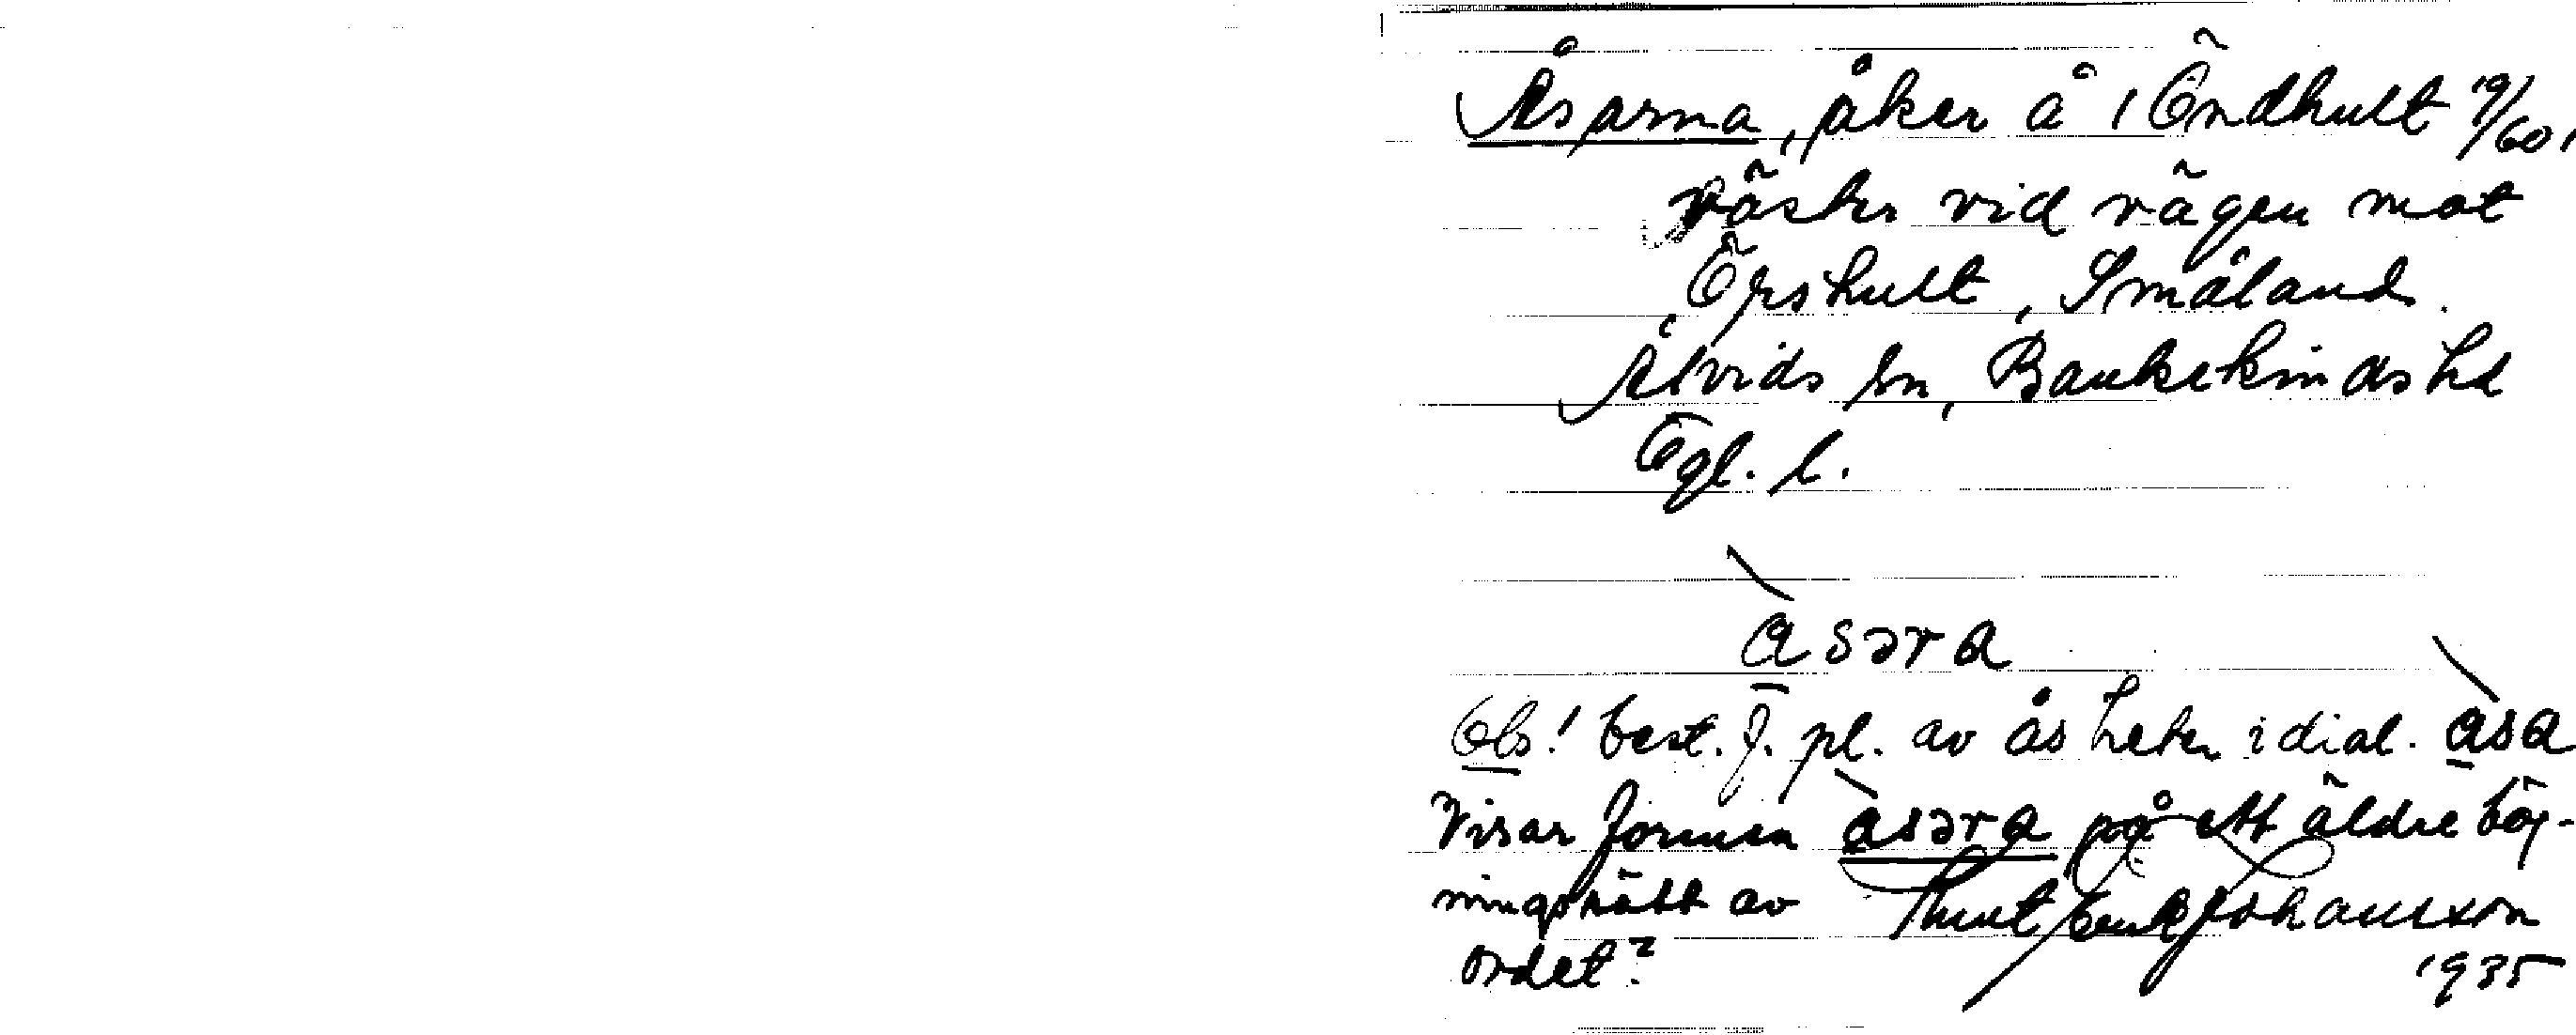 Åsarna, åker å 1 Öndhult 19/60,
väster vid vägen mot
Örshult, Småland.
Åtvids sn, Bankekinds hd
Ögl. l.
àsəra
Obs! best. f. pl. av ås heter i dial. àsa
Visar formen àsəra på ett äldre böj-
ningssätt av
ordet?
Knut Johansson
1935